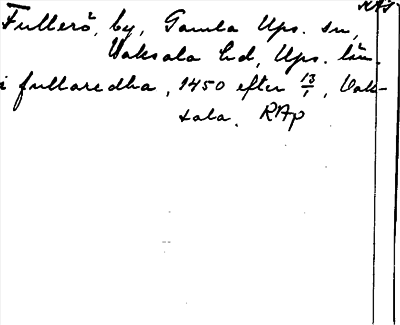 RAp
Fullerö, by, Gamla Ups. sn,
Vaksala hd, Ups. län.
i fullaredha, 1450 efter 13/1, Vak-
sala. RAp